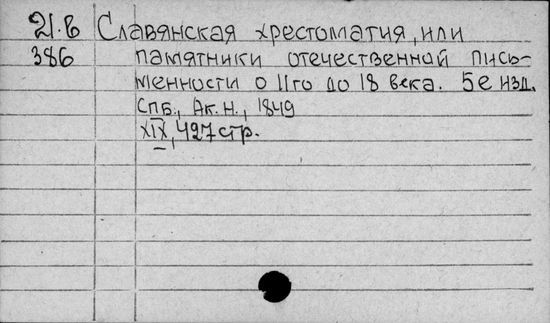 21.в Славянская хрестоматия, или
386 памятники отечественной пись-
менности о 11го до 18 века. 5е изд.
Спб., Ак. н., 1849
XIX, 427 стр.